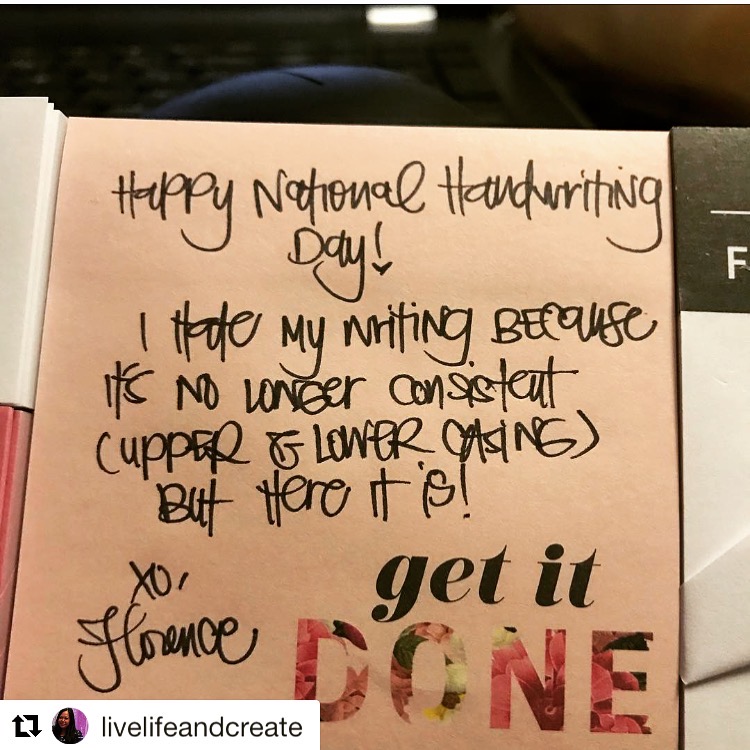 Happy National Handwriting
Day!
I Hate My Writing BECause
it's NO LONGer Consistent
(UPPER & LOWER CASING)
But Here it is!
xo,
Florence
get it
DONE
F
livelifeandcreate